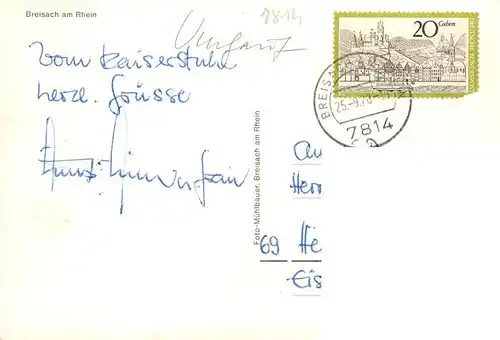 Breisach am Rhein
7814
Vom Kaiserstuhl
herzl. Grüsse
Foto-Mühlbauer, Breisach am Rhein
20 Cochem
DEUTSCHE BUNDESPOST
BREISACH
25.-9.70
7814
An
Herr
69 He
Eis